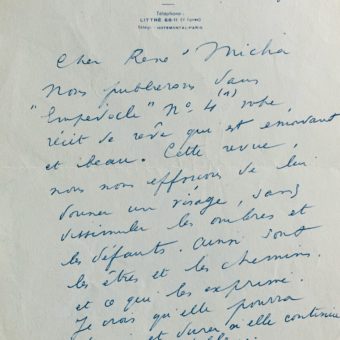 Téléphone:
LITTRÉ 68-11 (7 lignes)
Télégr.: HOTEMONTAL-PARIS
Cher René Micha
Nous publierons dans
"Empédocle" N° 4 (1) votre
récit de rêve qui est émouvant
et beau. Cette revue,
nous nous efforçons de lui
donner un visage, sans
dissimuler les ombres et
les défauts. Ainsi sont
les êtres et les chemins.
et ce qui les exprime.
Je crois qu'elle pourra
et durer si elle continue